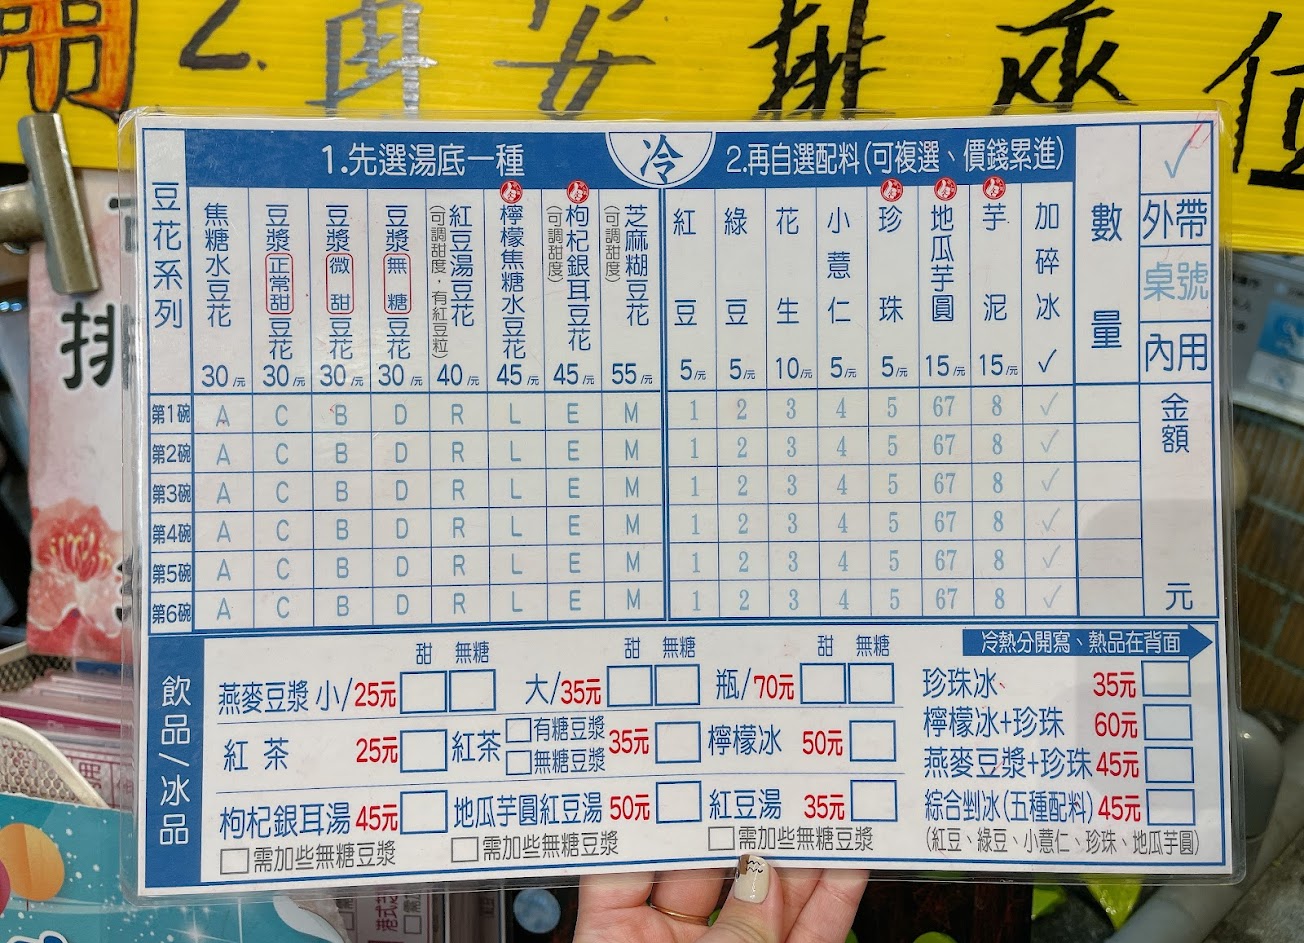 用 2. 再 安 排 座 位
排
1.先選湯底一種
冷
2.再自選配料(可複選、價錢累進)
✓
外帶
桌號
內用
豆花系列
焦糖水豆花 30/元
豆漿正常甜豆花 30/元
豆漿微甜豆花 30/元
豆漿無糖豆花 30/元
紅豆湯豆花(可調甜度,有紅豆粒) 40/元
檸檬焦糖水豆花 45/元
枸杞銀耳豆花(可調甜度) 45/元
芝麻糊豆花(可調甜度) 55/元
紅豆 5/元
綠豆 5/元
花生 10/元
小薏仁 5/元
珍珠 5/元
地瓜芋圓 15/元
芋泥 15/元
加碎冰 ✓
數量
金額
元
第1碗 A C B D R L E M 1 2 3 4 5 67 8 ✓
第2碗 A C B D R L E M 1 2 3 4 5 67 8 ✓
第3碗 A C B D R L E M 1 2 3 4 5 67 8 ✓
第4碗 A C B D R L E M 1 2 3 4 5 67 8 ✓
第5碗 A C B D R L E M 1 2 3 4 5 67 8 ✓
第6碗 A C B D R L E M 1 2 3 4 5 67 8 ✓
飲品/冰品
甜 無糖 甜 無糖 甜 無糖
冷熱分開寫、熱品在背面
燕麥豆漿 小/25元 大/35元 瓶/70元
紅茶 25元
紅茶 有糖豆漿 無糖豆漿 35元
檸檬冰 50元
枸杞銀耳湯 45元
需加些無糖豆漿
地瓜芋圓紅豆湯 50元
需加些無糖豆漿
紅豆湯 35元
需加些無糖豆漿
珍珠冰 35元
檸檬冰+珍珠 60元
燕麥豆漿+珍珠 45元
綜合剉冰(五種配料) 45元
(紅豆、綠豆、小薏仁、珍珠、地瓜芋圓)